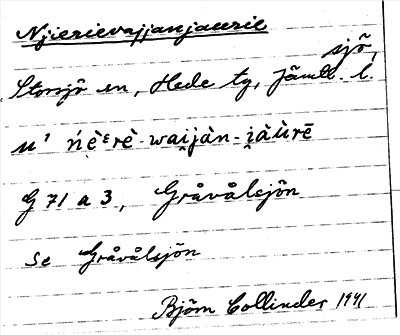 Njierievajjanjaurie
sjö,
Storsjö sn, Hede tg, Jämtl. l.
u¹ ńe̮ὲᵋrè-waįjàn-i̯àùrē
G 71 a 3, Gråvålsjön
se Gråvålsjön
Björn Collinder 1941